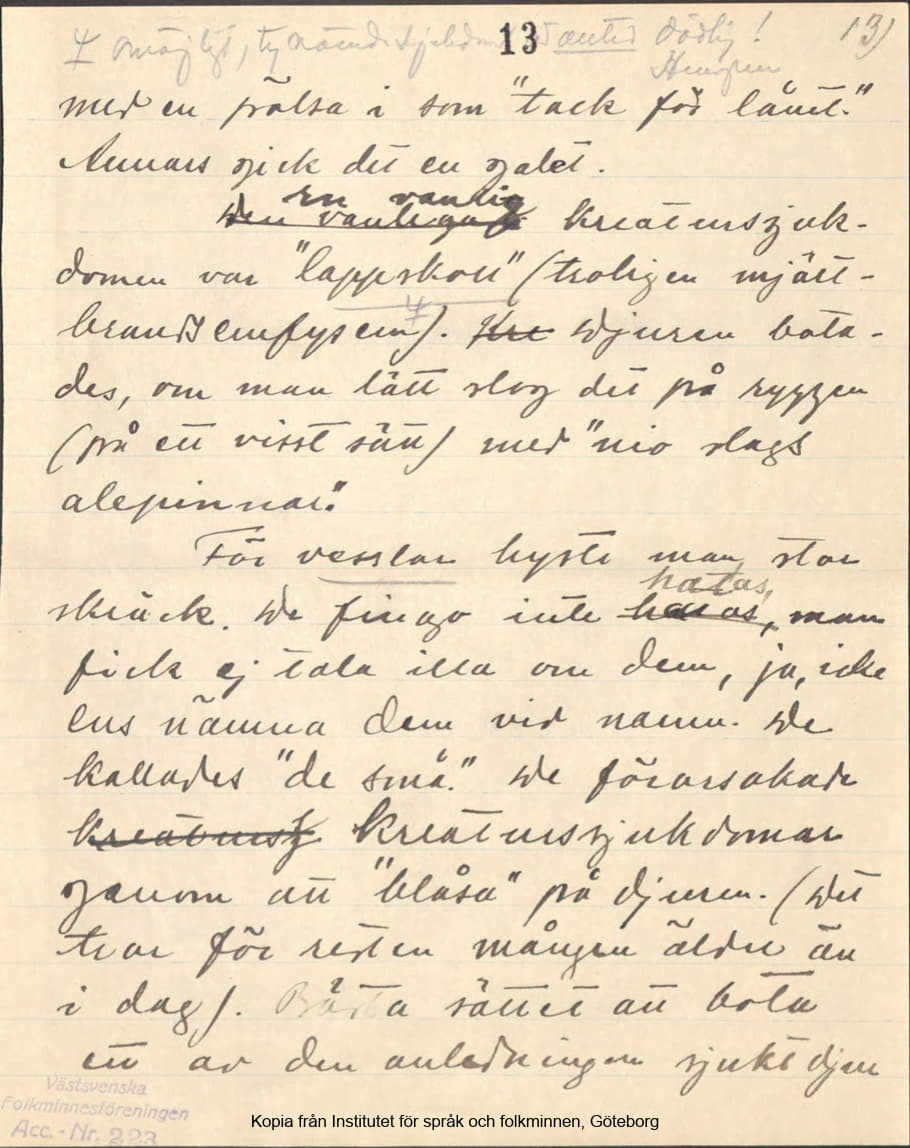 omöjligt, ty nämnda sjukdom antid dödlig!
13
13)
med en pälsa i som "tack för lånet."
Annars gick det en galet.
Den vanligaste en vanlig kreaturssjuk-
domen var "lappskott" (troligen mjält-
brandsemfysem). Kre Djuren bota-
des, om man lätt slog det på ryggen
(på ett visst sätt) med "nio slags
alepinnar."
För vesslan hyste man stor
skräck. De fingo inte hatas, man
fick ej tala illa om dem, ja, icke
ens nämna dem vid namn. De
kallades "de små." De förorsakade
kreatursj kreaturssjukdomar
genom att "blåsa" på djuren. (Det
tror för resten mången äldre än
i dag). Bästa sättet att bota
ett av den anledningen sjukt djur
Västsvenska
Folkminnesföreningen
Acc.-Nr. 223
Kopia från Institutet för språk och folkminnen, Göteborg